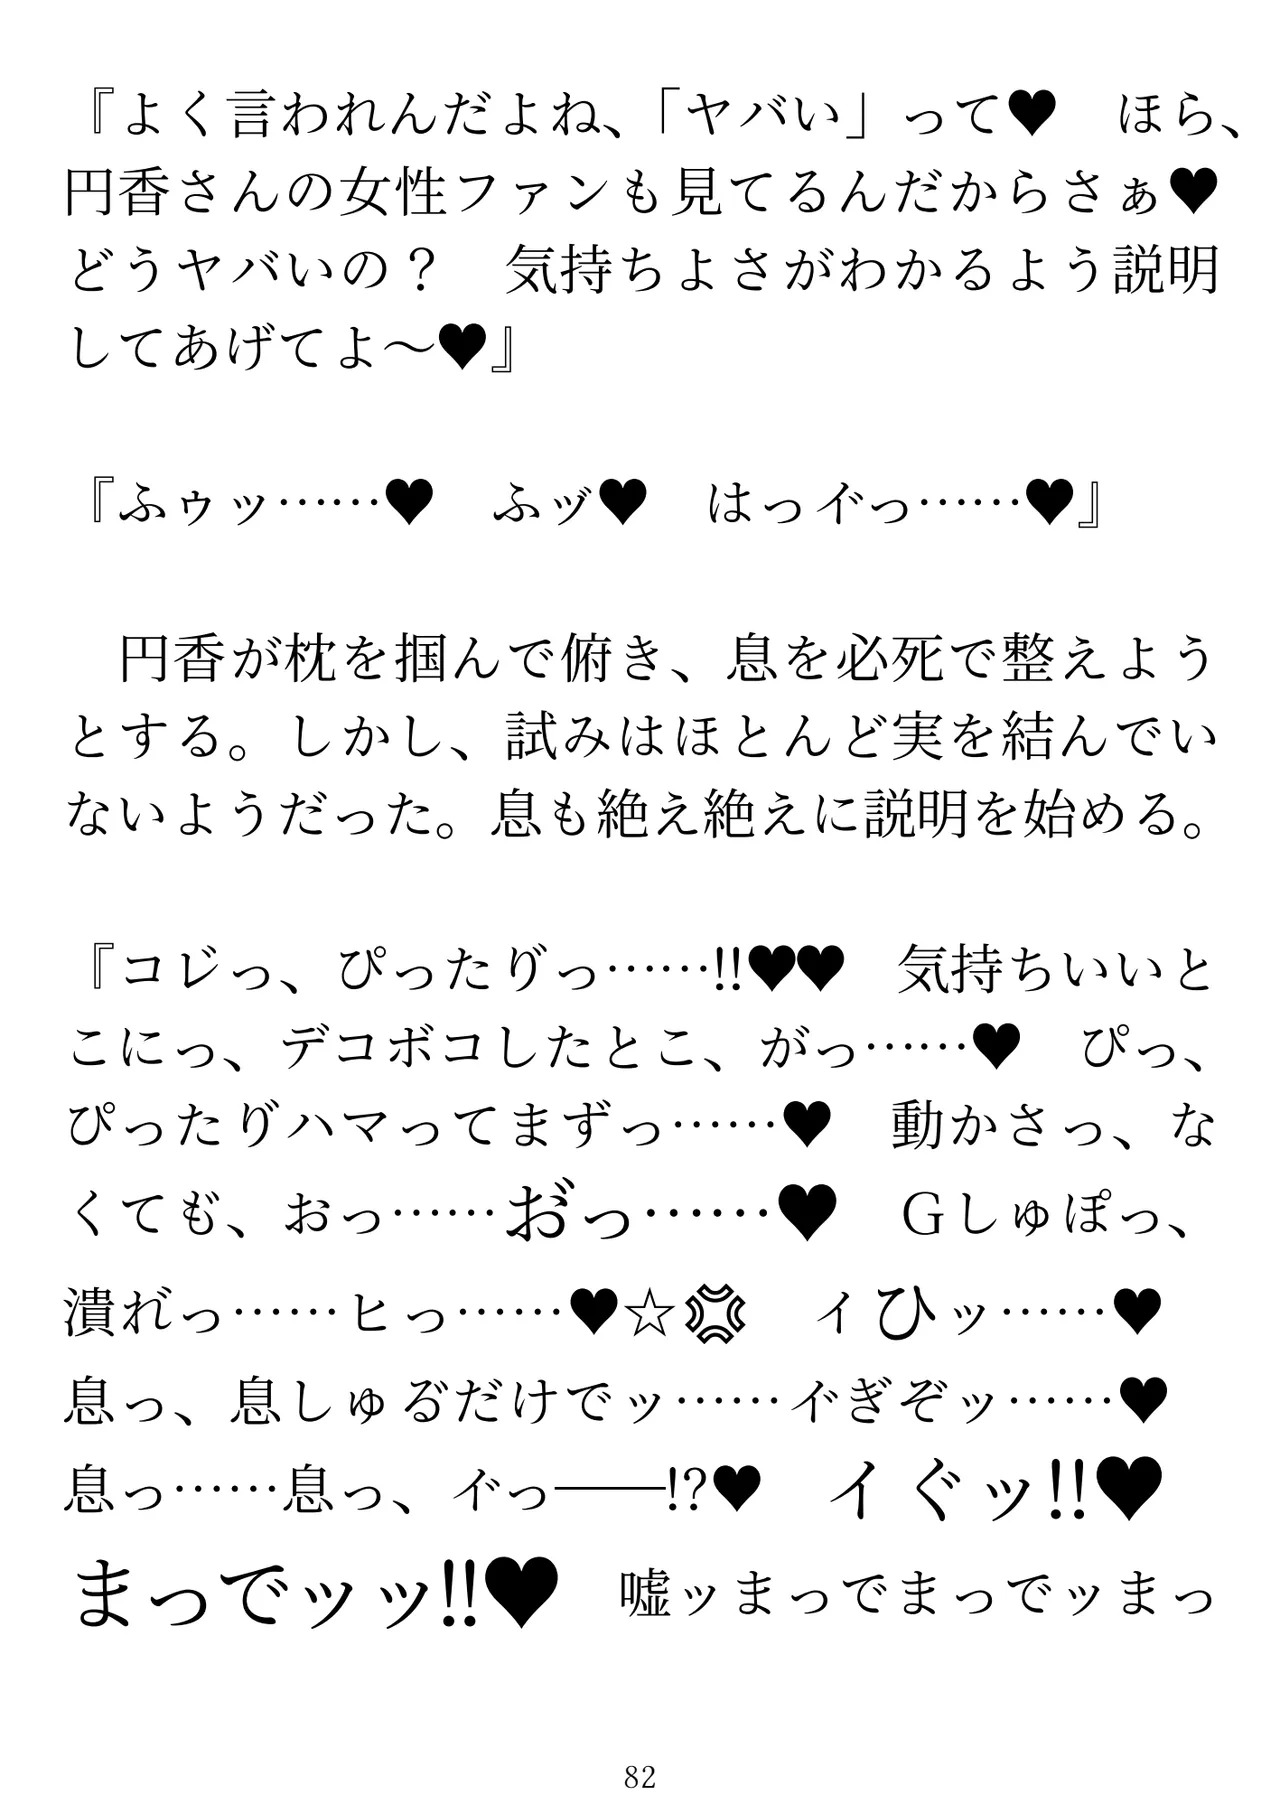 『よく言われんだよね、「ヤバい」って♥　ほら、
円香さんの女性ファンも見てるんだからさぁ♥
どうヤバいの？　気持ちよさがわかるよう説明
してあげてよ〜♥』
『ふゥッ……♥　ふッ゛♥　はっイ゛っ……♥』
　円香が枕を掴んで俯き、息を必死で整えよう
とする。しかし、試みはほとんど実を結んでい
ないようだった。息も絶え絶えに説明を始める。
『コレ゛っ、ぴったり゛っ……!!♥♥　気持ちいいと
こにっ、デコボコしたとこ、がっ……♥　ぴっ、
ぴったり゛ハマってまずっ……♥　動かさっ、な
くても゛、おっ……お゛っ……♥　Ｇしゅぽっ、
潰れ゛っ……ヒっ……♥☆💢　ィひッ……♥
息っ、息しゅる゛だけでッ……イ゛ぎぞッ……♥
息っ……息っ、イ゛っ――!?♥　イぐッ!!♥
まっでッッ!!♥　嘘ッまっでまっでッまっ
82